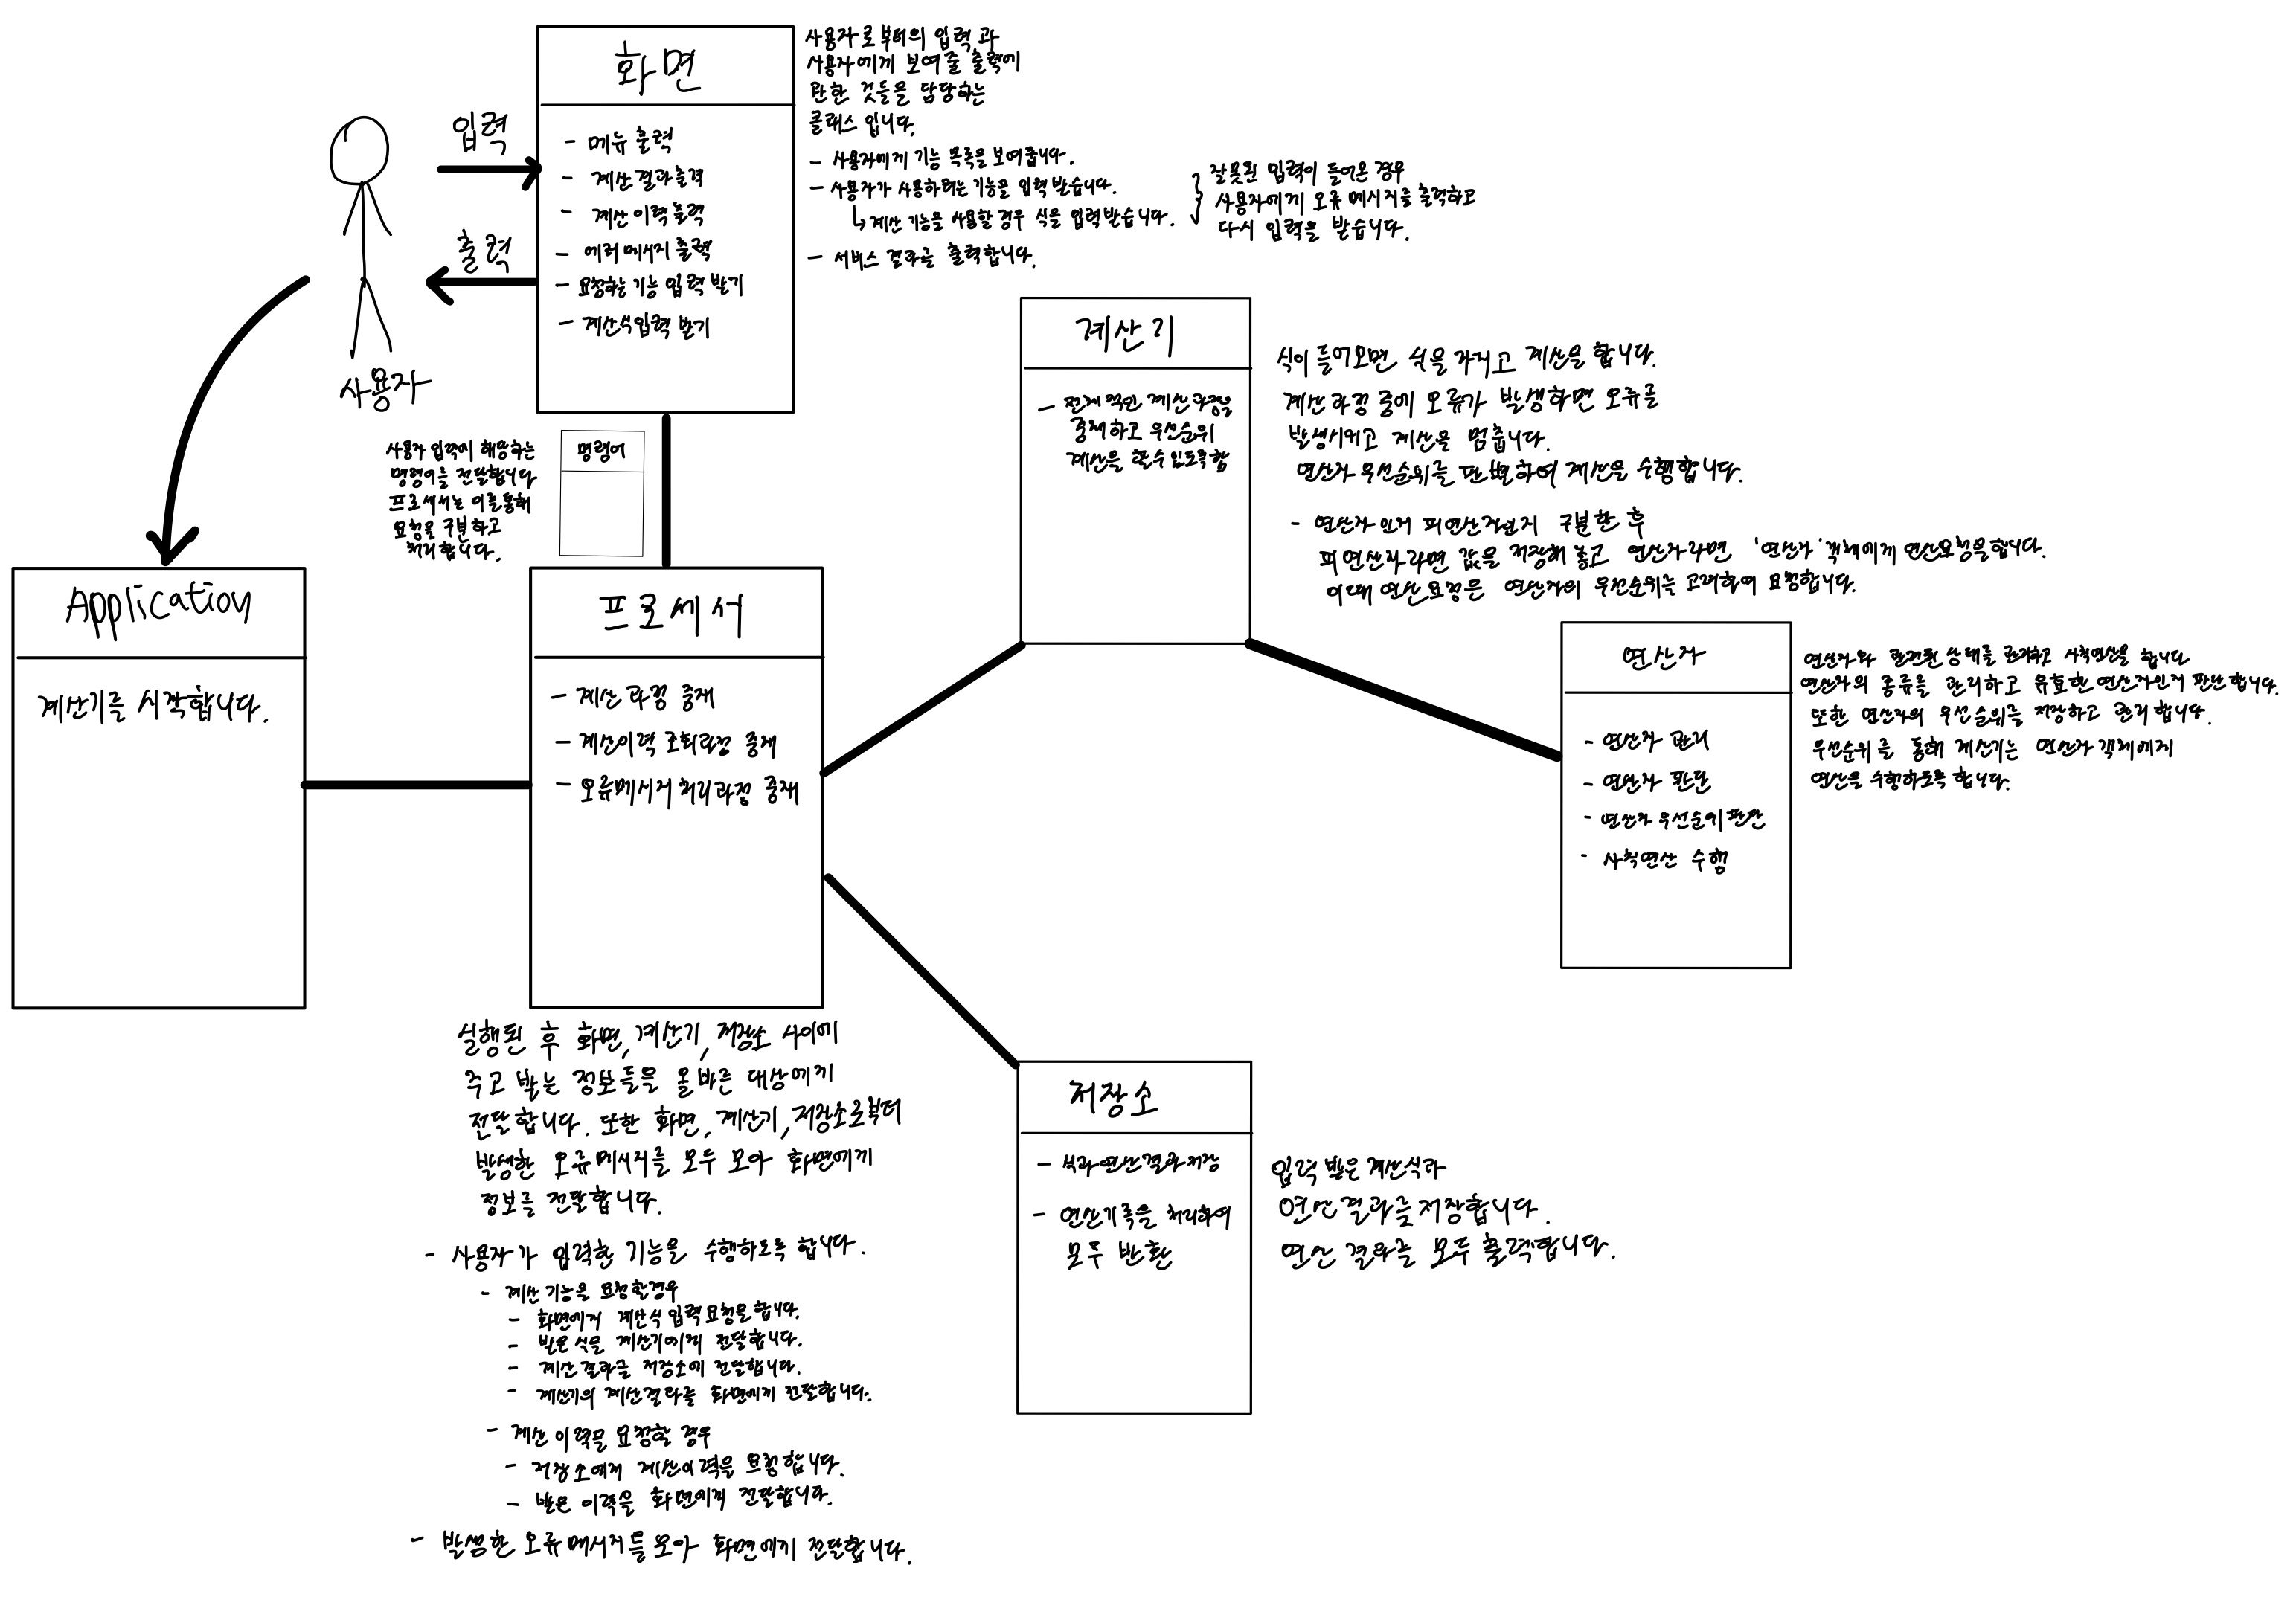 화면
- 메뉴 출력
- 계산 결과 출력
- 계산 이력 출력
- 에러 메시지 출력
- 요청하는 기능 입력 받기
- 계산식 입력 받기
사용자로부터의 입력과
사용자에게 보여줄 출력에
관한 것들을 담당하는
클래스 입니다.
- 사용자에게 기능 목록을 보여줍니다.
- 사용자가 사용하려는 기능을 입력 받습니다.
↳ 계산 기능을 사용할 경우 식을 입력받습니다.
- 서비스 결과를 출력합니다.
잘못된 입력이 들어온 경우
사용자에게 오류 메시지를 출력하고
다시 입력을 받습니다.
입력
출력
사용자
사용자 입력에 해당하는
명령어를 전달합니다
프로세서는 이를 통해
요청을 구분하고
처리합니다.
명령어
Application
계산기를 시작합니다.
프로세서
- 계산 과정 중재
- 계산이력 조회과정 중재
- 오류메시지 처리과정 중재
실행된 후 화면, 계산기, 저장소 사이에
주고 받는 정보들을 올바른 대상에게
전달합니다. 또한 화면, 계산기, 저장소로부터
발생한 오류 메시지를 모두 모아 화면에게
정보를 전달합니다.
- 사용자가 입력한 기능을 수행하도록 합니다.
- 계산 기능을 요청할경우
- 화면에게 계산식 입력 요청을 합니다.
- 받은 식을 계산기에게 전달합니다.
- 계산 결과를 저장소에 전달합니다.
- 계산기의 계산결과를 화면에게 전달합니다.
- 계산 이력을 요청할 경우
- 저장소에게 계산이력을 요청합니다.
- 받은 이력을 화면에게 전달합니다.
- 발생한 오류 메시지들을 모아 화면에게 전달합니다.
계산기
- 전체적인 계산 과정을
중재하고 우선순위
계산을 할수있도록함
식이 들어오면 식을 가지고 계산을 합니다.
계산 과정 중에 오류가 발생하면 오류를
발생시키고 계산을 멈춥니다.
연산자 우선순위를 판별하여 계산을 수행합니다.
- 연산자인지 피연산자인지 구분한 후
피연산자라면 값을 저장해 놓고 연산자라면 '연산자' 객체에게 연산요청을합니다.
이때 연산 요청은 연산자의 우선순위를 고려하여 요청합니다.
연산자
- 연산자 관리
- 연산자 판단
- 연산자 우선순위 판단
- 사칙연산 수행
연산자와 관련된 상태를 관리하고 사칙연산을 합니다
연산자의 종류를 관리하고 유효한 연산자인지 판단합니다.
또한 연산자의 우선순위를 저장하고 관리합니다.
우선순위를 통해 계산기는 연산자 객체에게
연산을 수행하도록 합니다.
저장소
- 식과 연산결과 저장
- 연산기록을 처리하여
모두 반환
입력 받은 계산식과
연산 결과를 저장합니다.
연산 결과를 모두 출력합니다.